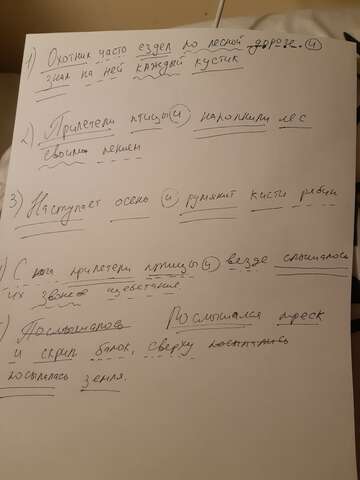 1) Охотник часто ездел по лесной дороге. и
знал на ней каждый кустик
2) Прилетели птицы и наполнили лес
своим пением
3) Наступает осень и румянит кисти рябин
С юга прилетели птицы и везде слышалось
их звонкое щебетание.
Послышалось Послышался треск
и скрип балок, сверху посыпалась
посыпалась земля.